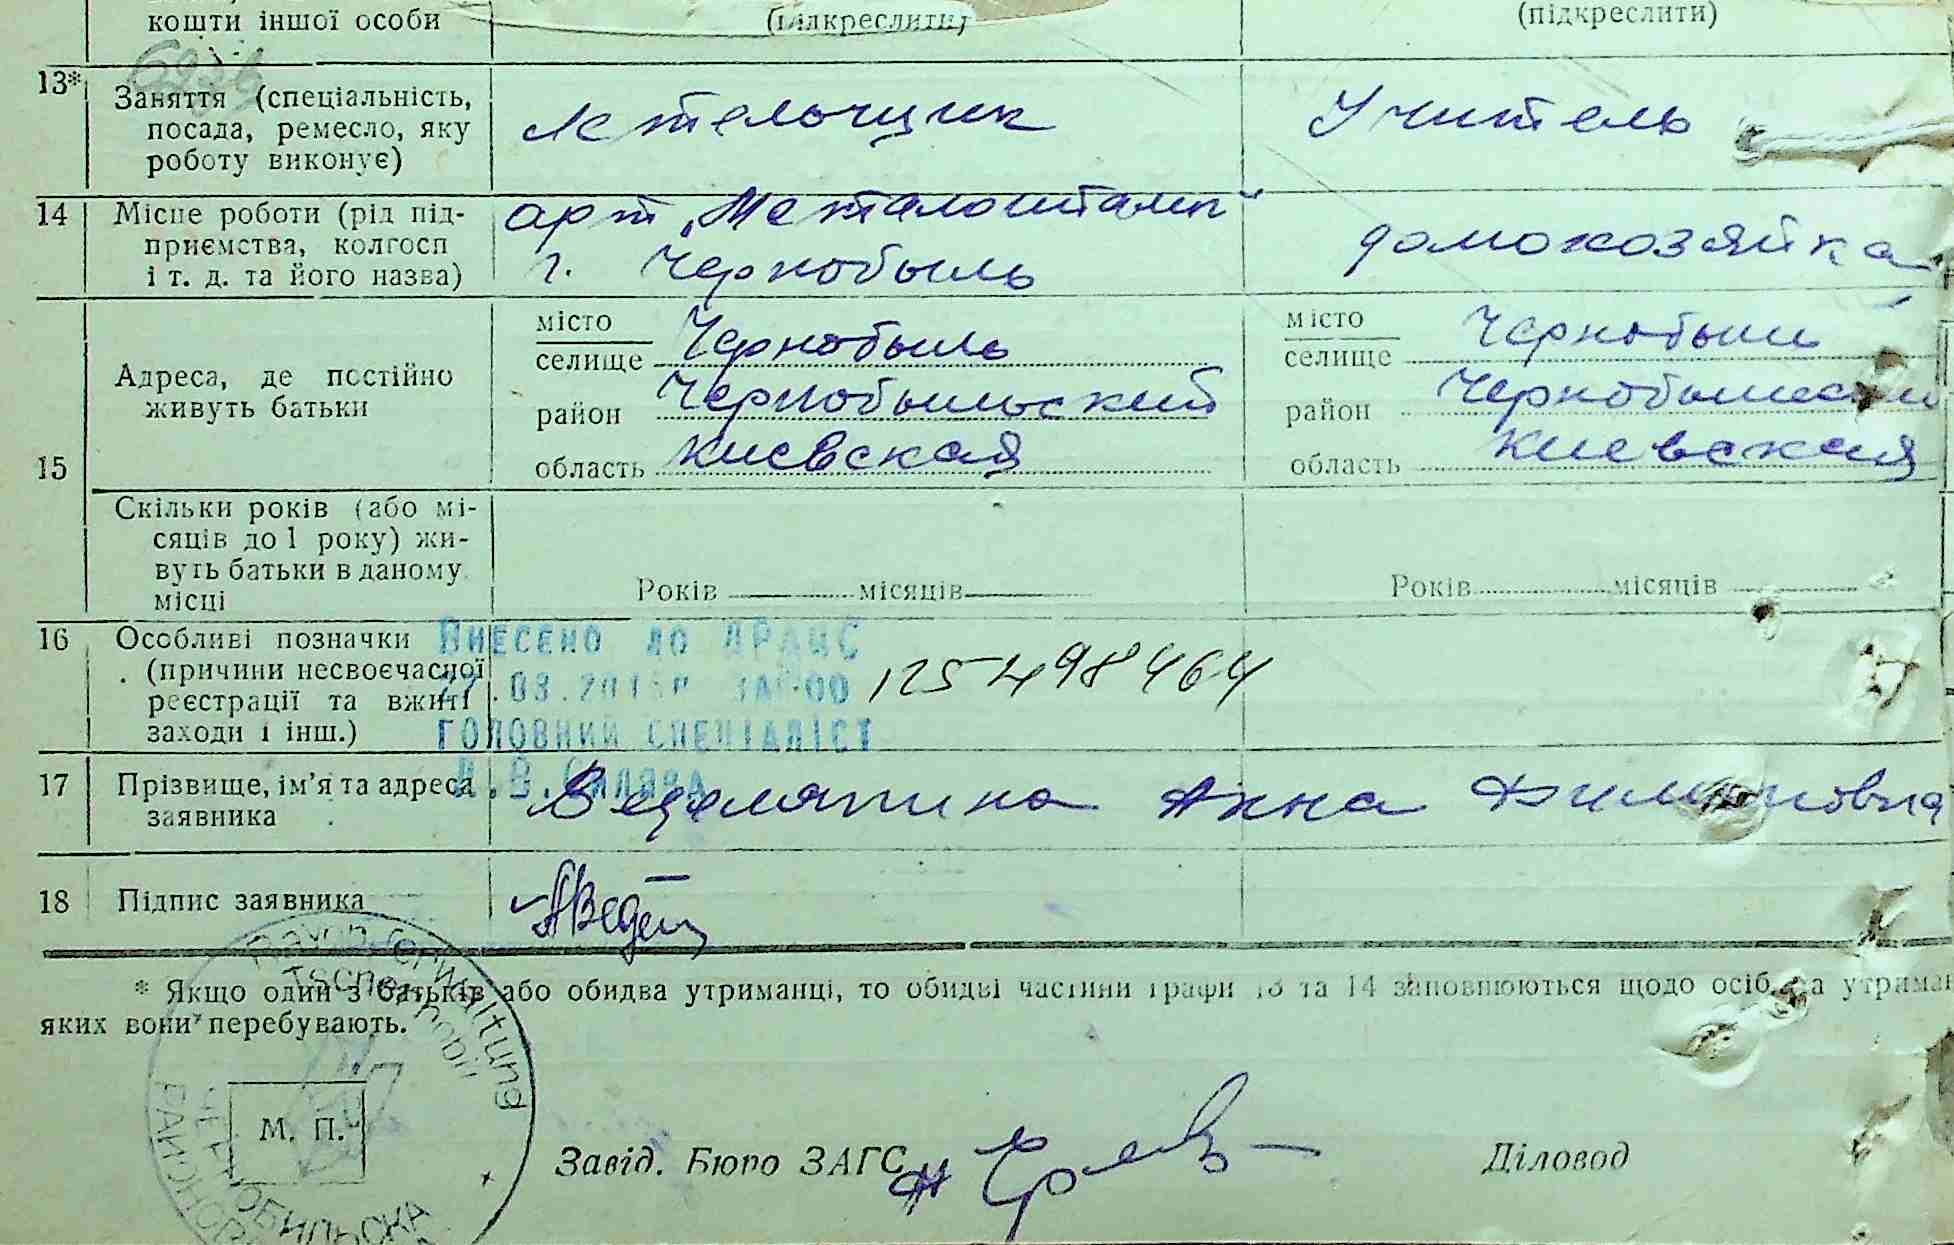 кошти іншої особи (підкреслити) (підкреслити)
13* Заняття (спеціальність, посада, ремесло, яку роботу виконує) Учитель
14 Місце роботи (рід підприємства, колгосп і т. д. та його назва) арт „Металоштамп“ г. Чернобыль домохозяйка
15 Адреса, де постійно живуть батьки
місто селище Чернобыль місто селище Чернобыль
район Чернобыльский район
область Киевская область Киевская
Скільки років (або місяців до 1 року) живуть батьки в даному місці Років місяців Років місяців
16 Особливі позначки (причини несвоєчасної реєстрації та вжиті заходи і інш.)
Внесено до ДРАЦС
125498464
головний спеціаліст
17 Прізвище, ім’я та адреса заявника Анна
18 Підпис заявника
* Якщо один з батьків або обидва утриманці, то обидві частини графи 13 та 14 заповнюються щодо осіб, на
яких вони перебувають.
Rayonverwaltung
Tschernobil
М. П.
Завід. Бюро ЗАГС Діловод